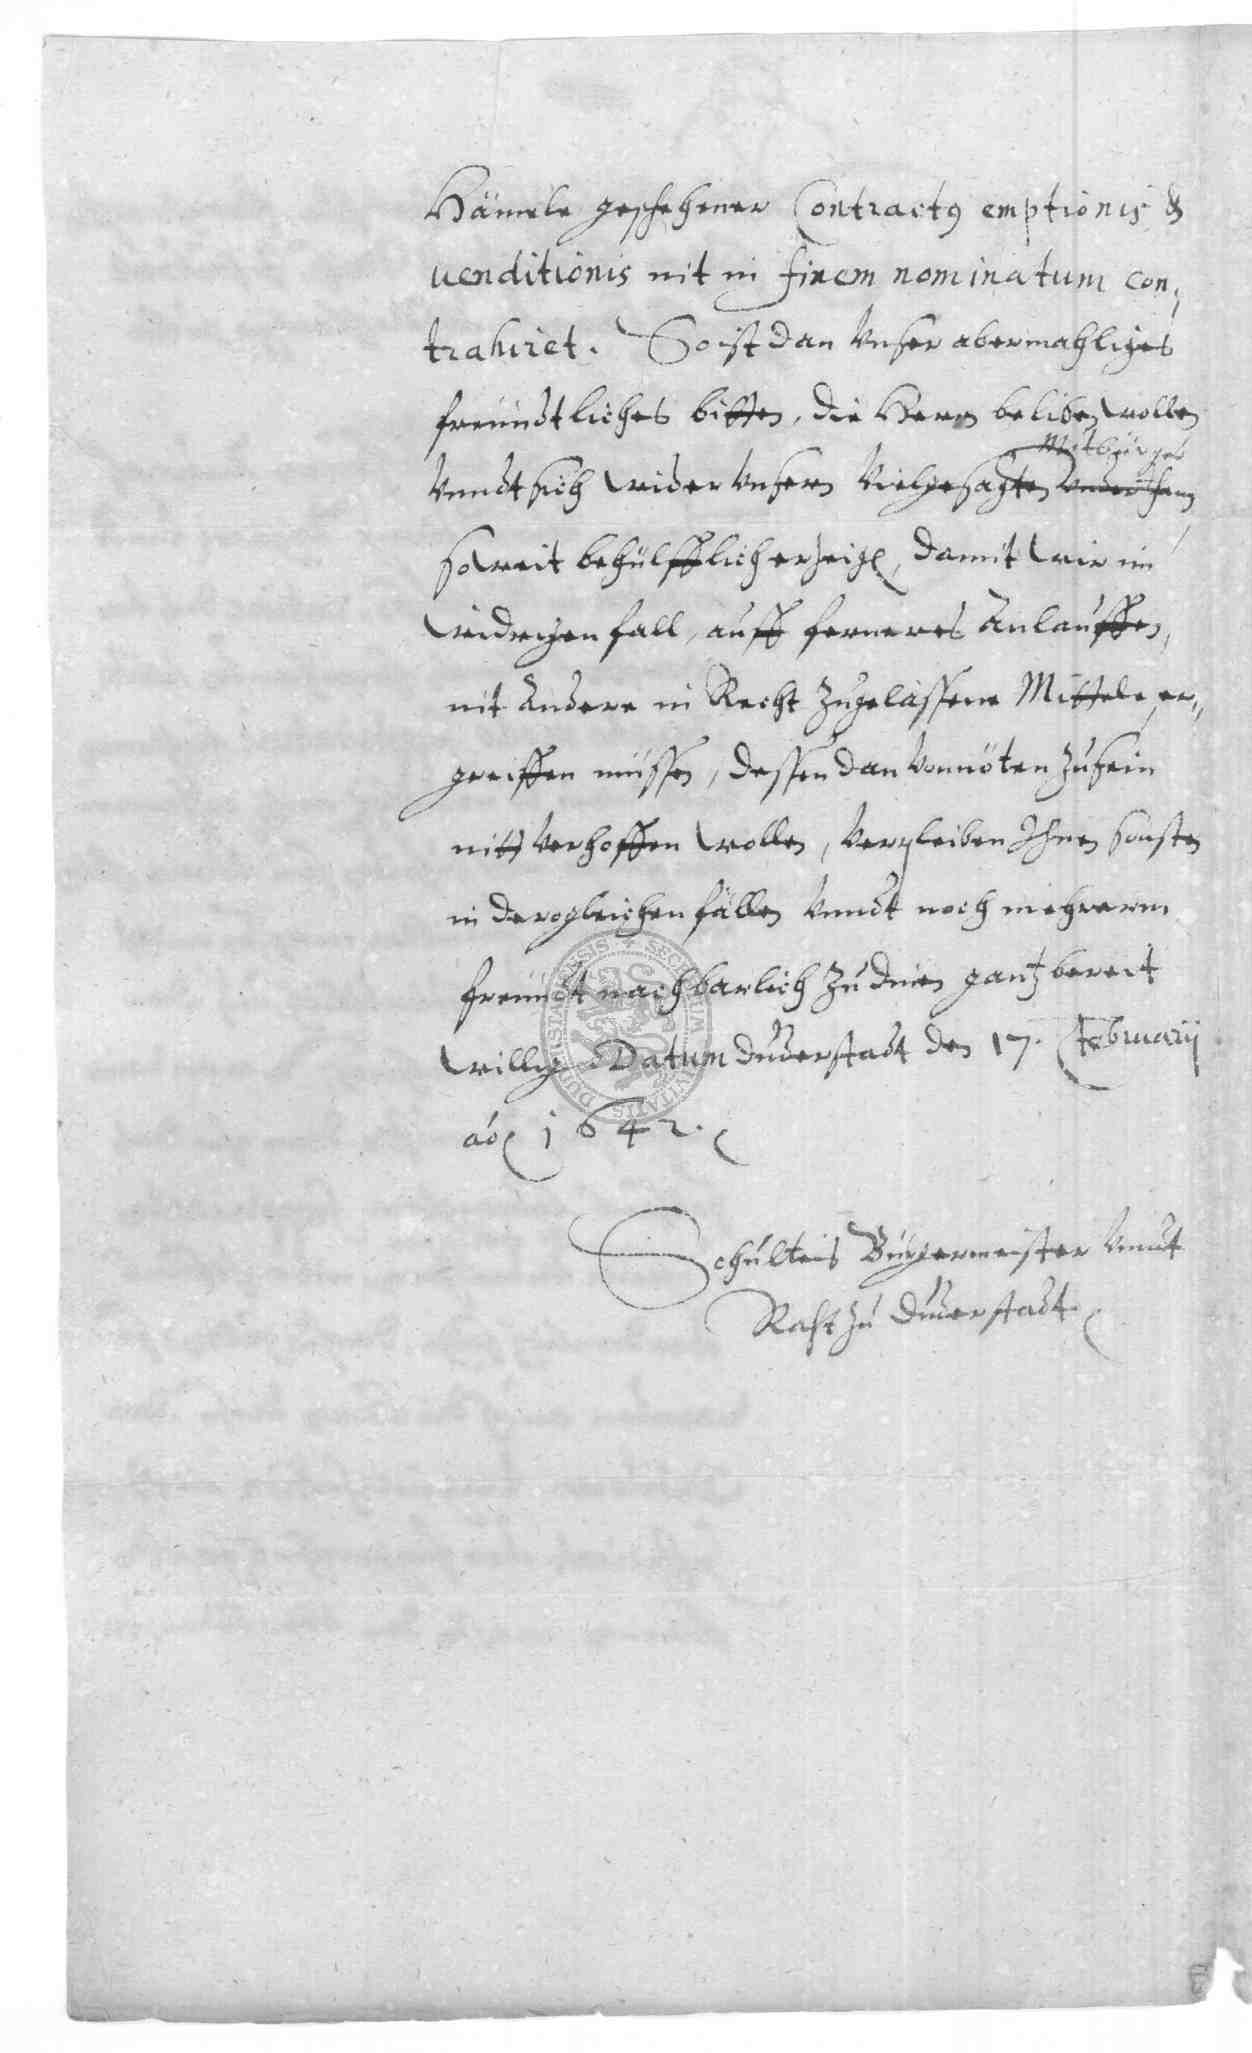 Hämele geschehener Contractus emptionis &
venditionis nit in finem nominatum con,
trahiret. So ist dan Unser abermahliges
freundtliches bitten, die Herrn beliben wollen
Mitbürger
Unndt sich wider Unsern Vielgesagten Underthan
so weit behülfflich erzeigen, damit wir im
widrigen fall, auff ferneres Anlauffen,
nit Andere in Recht zugelassene Mittele er,,
greiffen müssen, dessen dan Vonnöten zu sein
nitt Verhoffen wollen, Verpleiben Ihnen sonsten
in dergleichen fällen Unndt noch mehrerm
freundt nachbarlich zu dinen gantz bereit
willig Datum Duderstadt den 17. Februarij
ao 1642.
Schulteis Bürgermeister Unndt
Raht zu Duderstadt
SECRETUM CIVITATIS DUDERSTADENSIS